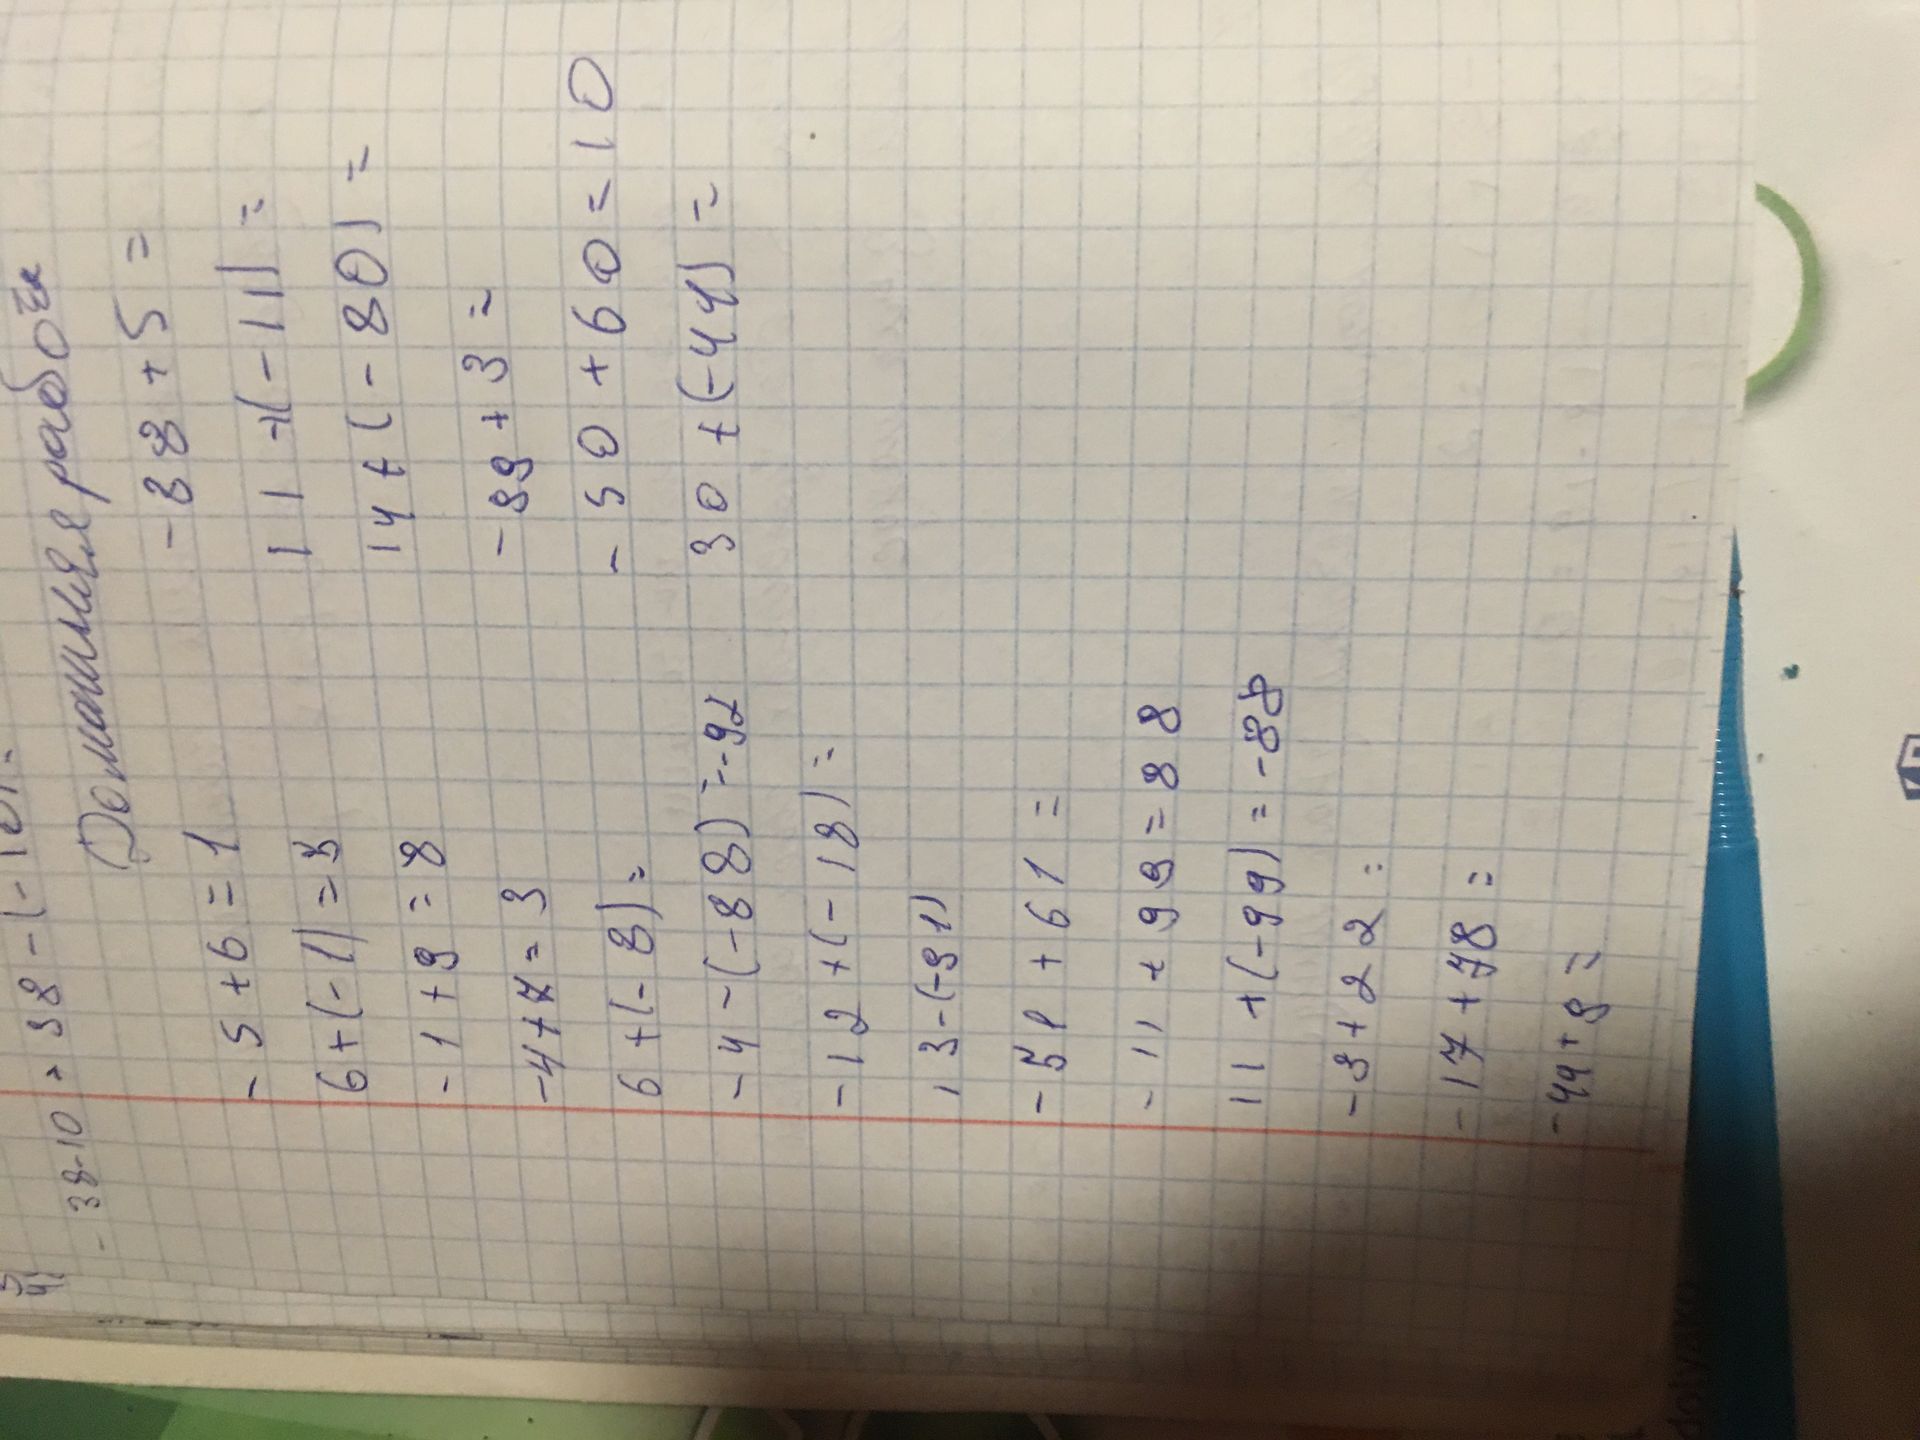 Домашняя работа
- 5 + 6 = 1
6 + (- 1) = 5
- 1 + 9 = 8
-4 + 7 = 3
6 + (- 8) =
- 4 - (- 8 8) = -92
- 12 + (- 18) =
13 - (-91)
- 51 + 61 =
- 11 + 99 = 88
11 + (-99) = -88
-3 + 22 =
-17 + 78 =
-44 + 8 =
- 38 + 5 =
11 + (- 11) =
14 + (- 80) =
- 89 + 3 =
- 50 + 60 = 10
30 + (-44) =